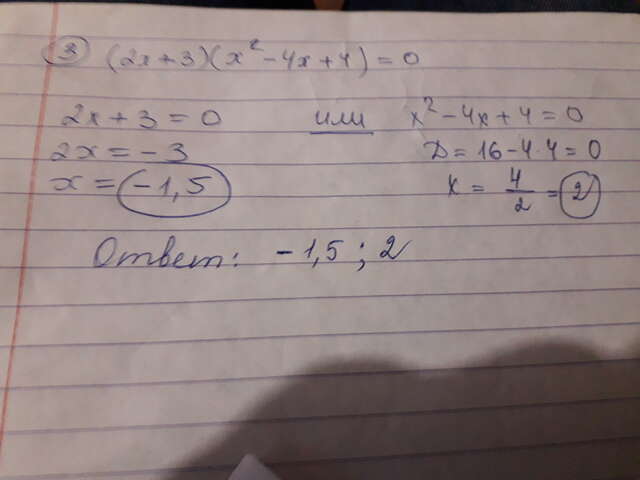 ③ (2x+3)(x²-4x+4)=0
2x+3=0 или x²-4x+4=0
2x=-3 D=16-4·4=0
x=-1,5 x=4/2=2
Ответ: -1,5; 2